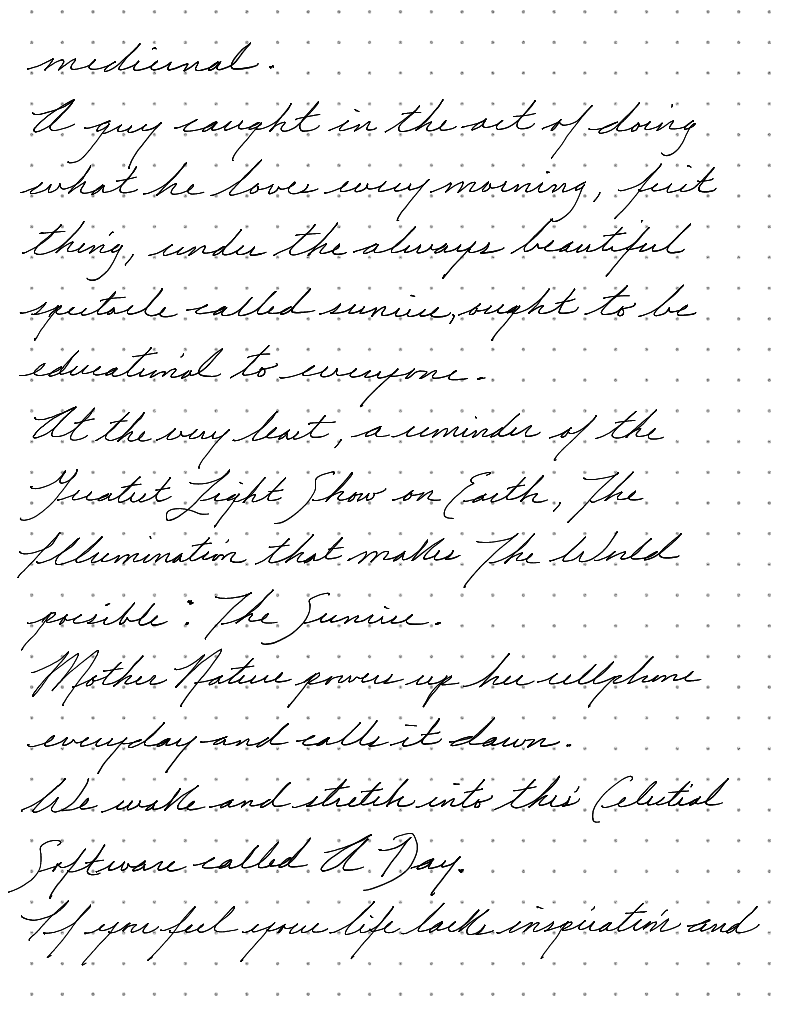 medicinal.
A guy caught in the act of doing
what he loves every morning, first
thing, under the always beautiful
spectacle called sunrise, ought to be
educational to everyone.
At the very least, a reminder of the
Greatest Light Show on Earth, The
Illumination that makes The World
possible: The Sunrise.
Mother Nature powers up her cellphone
everyday and calls it dawn.
We wake and stretch into this Celestial
Software called A Day.
If you feel your life lacks inspiration and